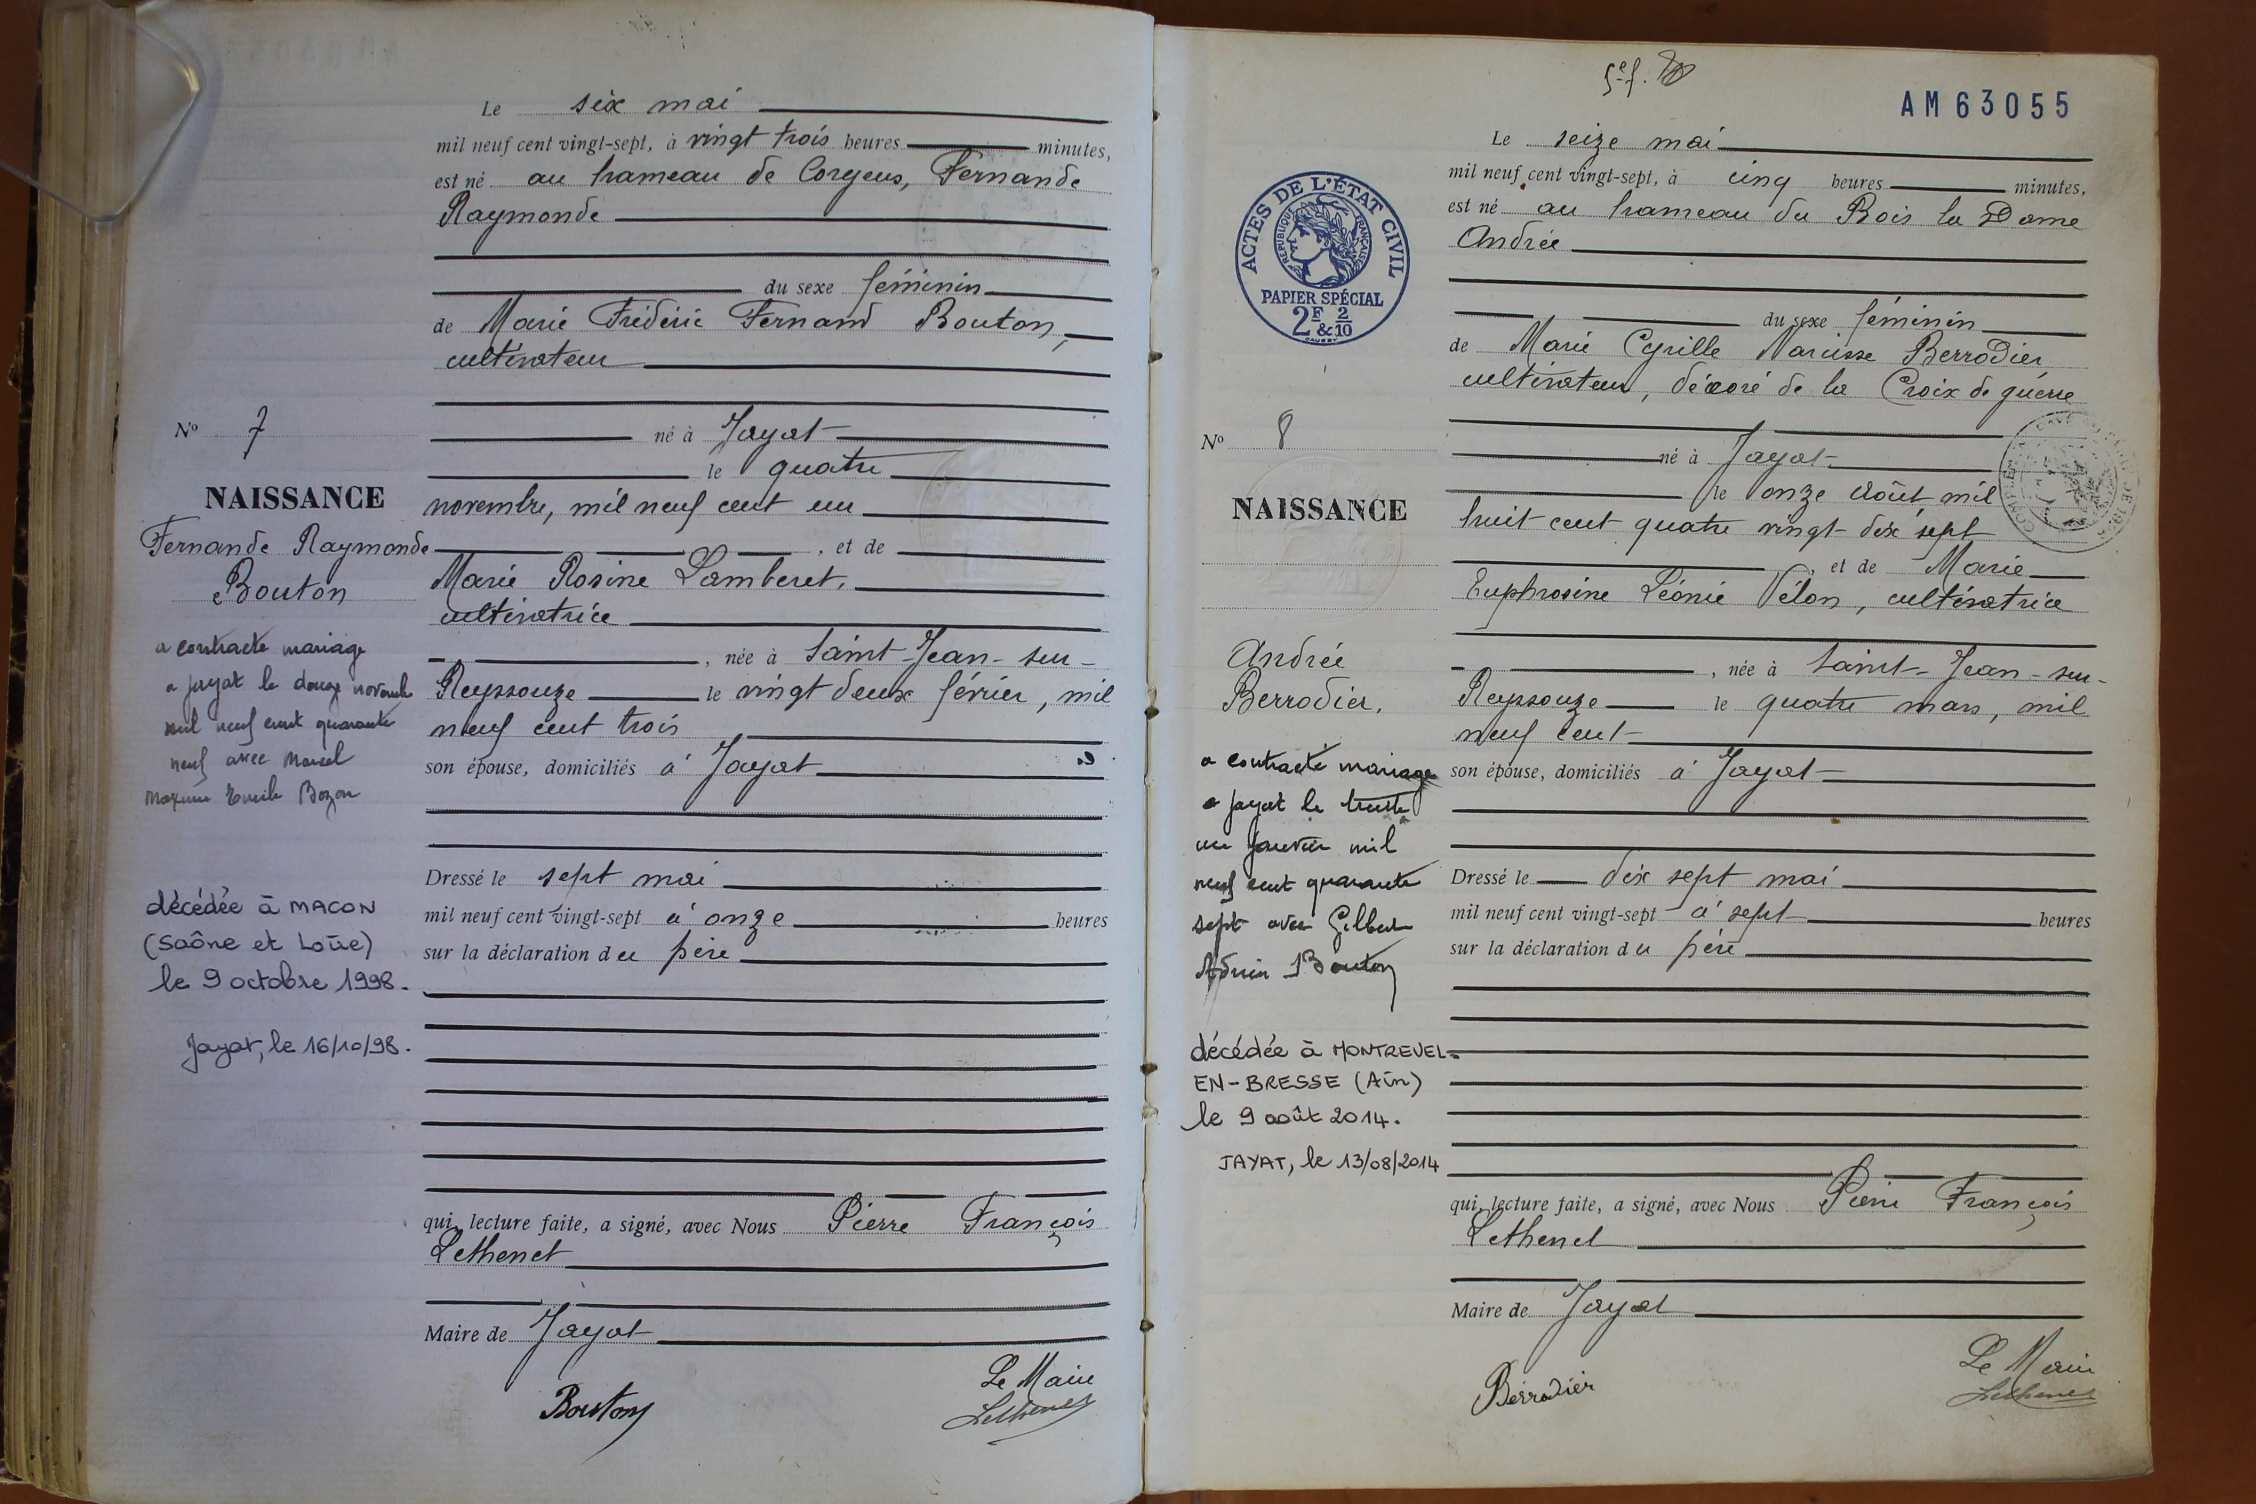 Le six mai
mil neuf cent vingt-sept, à vingt trois heures minutes,
est né au hameau de Corgeus, Fernande
Raymonde
du sexe féminin
de Marie Frédéric Fernand Bouton,
cultivateur
né à Jayat
le quatre
novembre, mil neuf cent un
, et de
Marie Rosine Lamberet,
cultivatrice
, née à Saint-Jean-sur-
Reyssouze le vingt deux février, mil
neuf cent trois
son épouse, domiciliés à Jayat
Dressé le sept mai
mil neuf cent vingt-sept à onze heures
sur la déclaration du père
qui, lecture faite, a signé, avec Nous Pierre François
Lethenet
Maire de Jayat
Le Maire
Bouton
Lethenet
N° 7
NAISSANCE
Fernande Raymonde
Bouton
a contracté mariage
a jayat le douze novembre
mil neuf cent quarante
neuf avec Marcel
Maxime Emile Bozon
décédée à MACON
(Saône et Loire)
le 9 octobre 1998.
Jayat, le 16/10/98.
5e f.
AM63055
Le seize mai
mil neuf cent vingt-sept, à cinq heures minutes,
est né au hameau du Bois la Dame
Andrée
du sexe féminin
de Marie Cyrille Narcisse Berrodier
cultivateur, décoré de la Croix de guerre
né à Jayat
le onze Août mil
huit cent quatre vingt-dix sept
, et de Marie
Euphrosine Léonie Vélon, cultivatrice
, née à Saint-Jean-sur-
Reyssouze le quatre mars, mil
neuf cent
son épouse, domiciliés à Jayat
Dressé le dix sept mai
mil neuf cent vingt-sept à sept heures
sur la déclaration du père
qui, lecture faite, a signé, avec Nous Pierre François
Lethenet
Maire de Jayat
Le Maire
Berrodier
Lethenet
ACTES DE L'ÉTAT CIVIL
RÉPUBLIQUE FRANÇAISE
PAPIER SPÉCIAL
2F & 2/10
N° 8
NAISSANCE
Andrée
Berrodier.
a contracté mariage
a jayat le trente
un Janvier mil
neuf cent quarante
sept avec Gilbert
Adrien Bouton
décédée à MONTREVEL-
EN-BRESSE (Ain)
le 9 août 2014.
JAYAT, le 13/08/2014